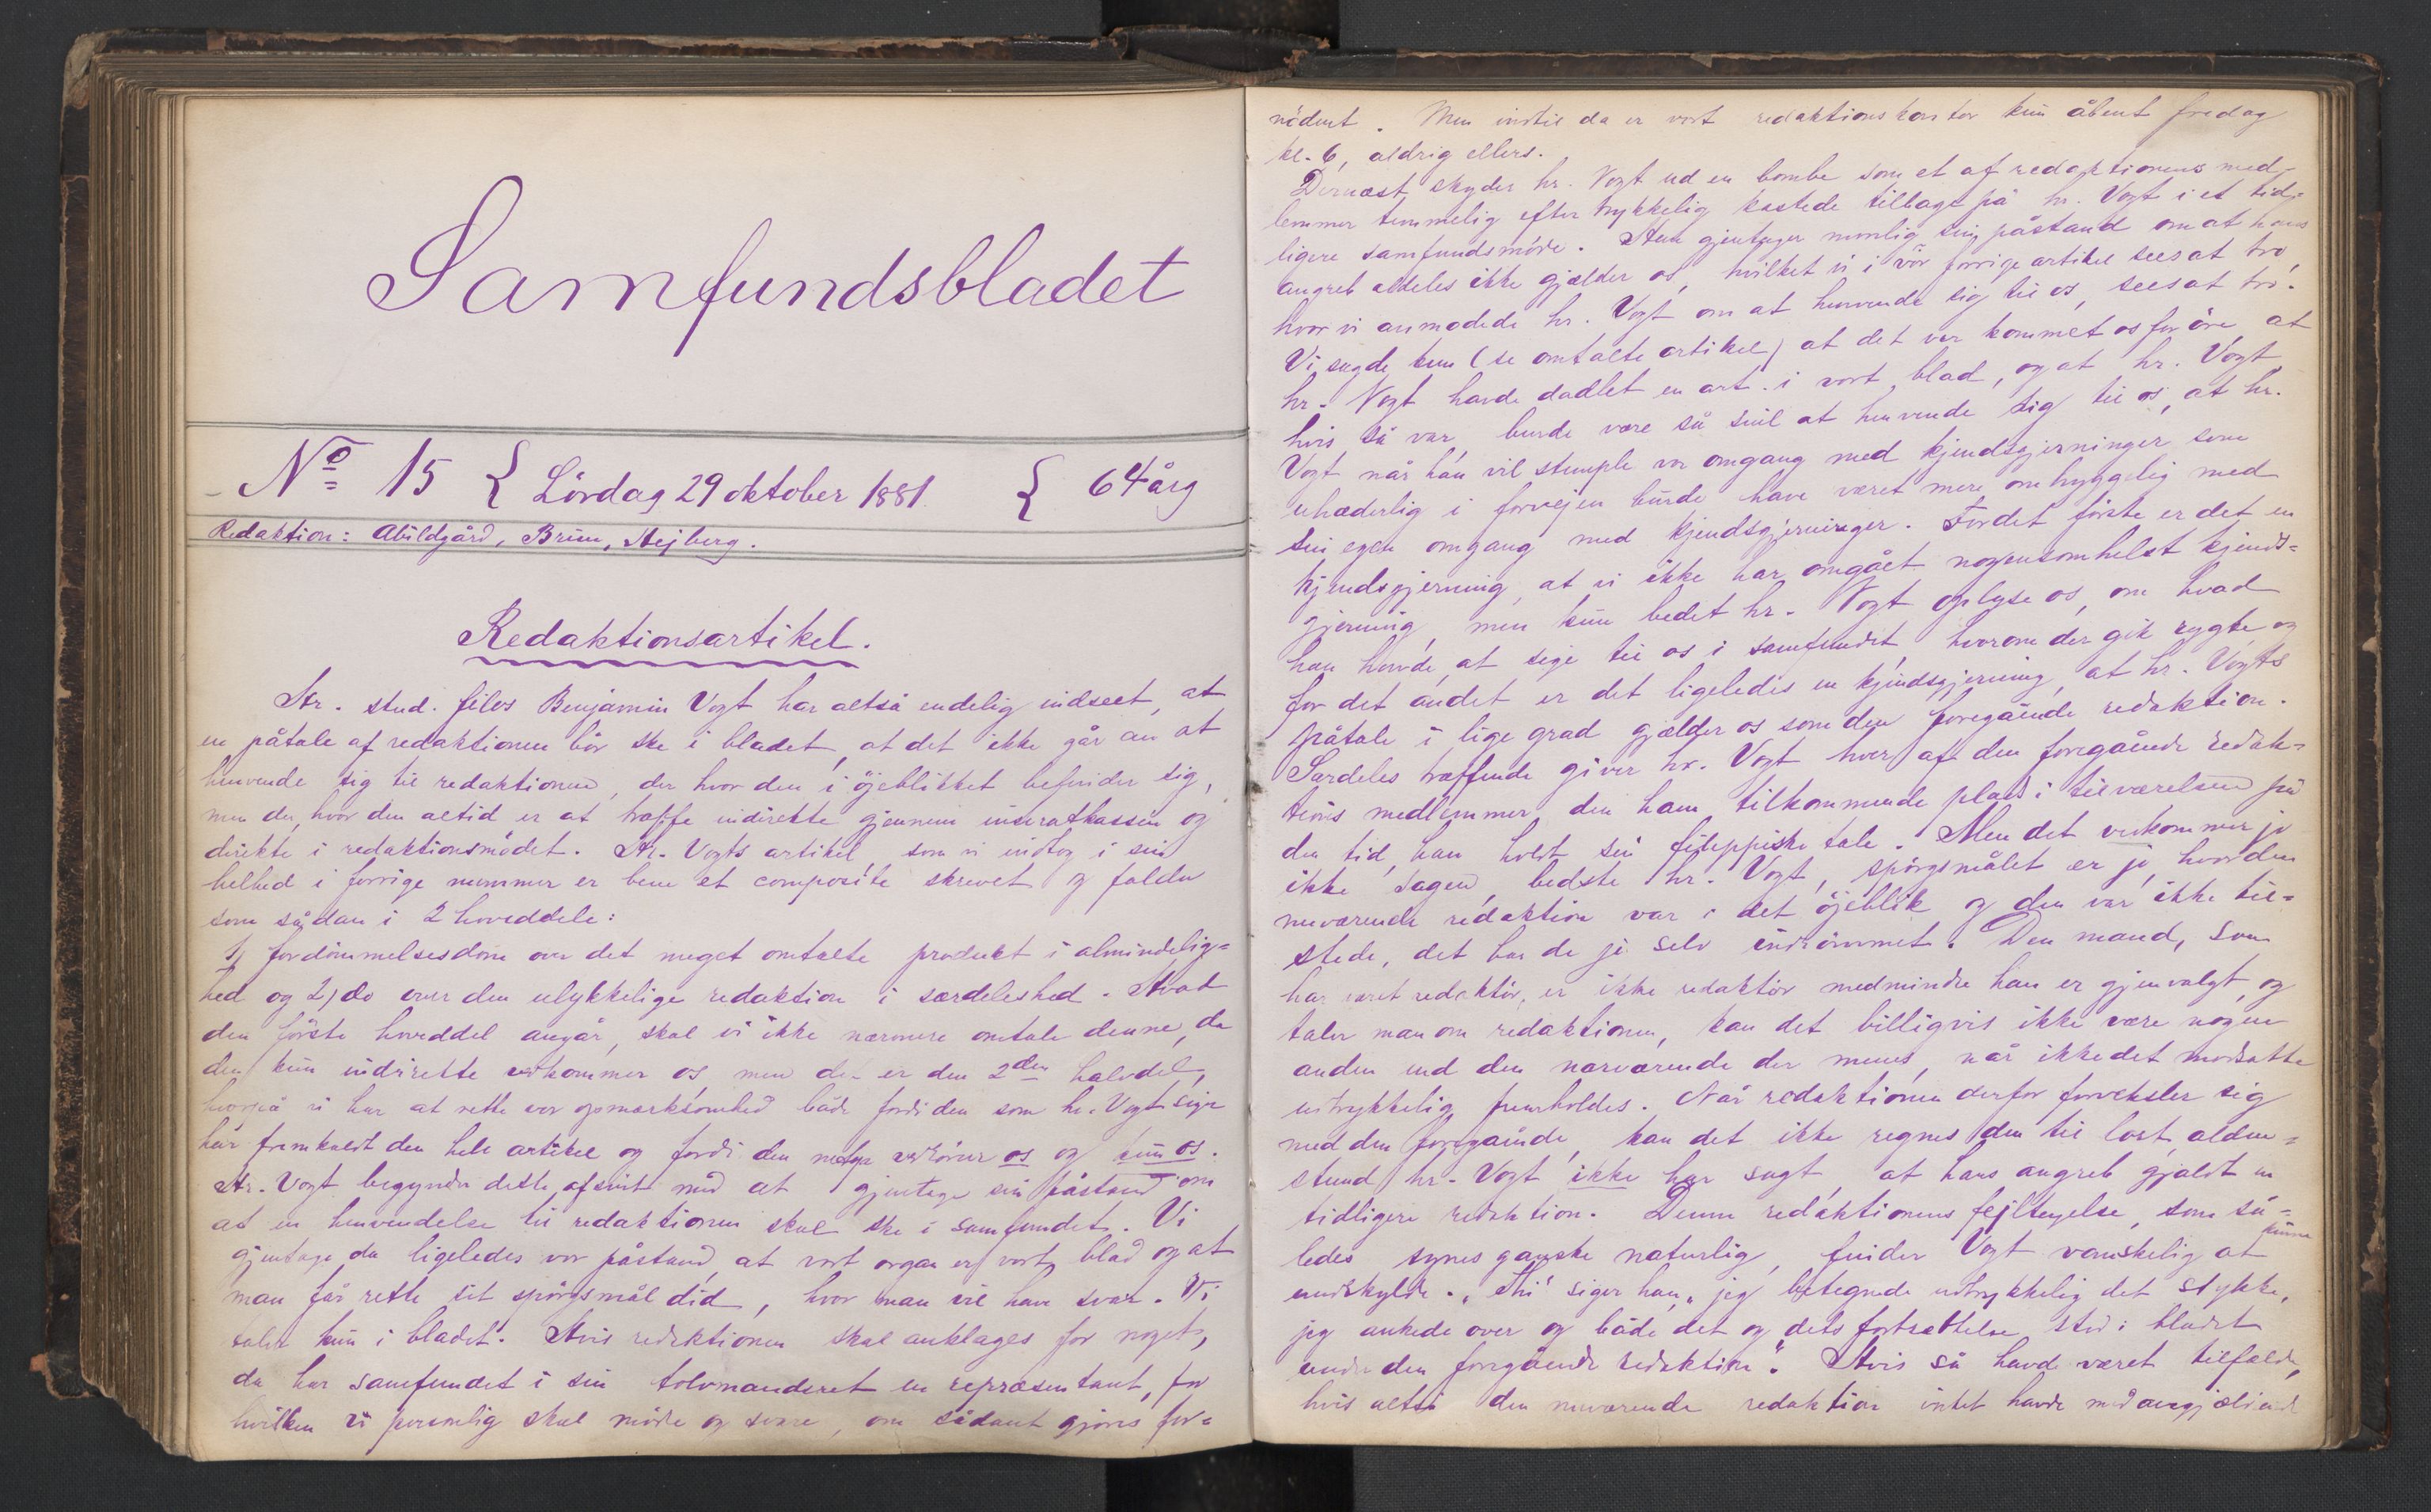 Samfundsbladet
No 15 { Lördag 29 oktober 1881. { 64 årg
Redaktion: Abildgård, Bruun, Hejberg.
Redaktionsartikel.
Hr. stud. filos Benjamin Vogt har altså endelig indseet, at
en påtale af redaktionen bör ske i bladet, at det ikke går an at
henvende sig til redaktionen, der hvor den i öjeblikket befinder sig,
men der, hvor den altid er at træffe indirekte gjennem inseratkassen og
direkte i redaktionsmödet. Hr. Vogts artikel, som vi indtog i sin
helhed i forrige nummer er bene et composite skrevet og falder
som sådan i 2 hoveddele:
1, fordömmelsesdom over det meget omtalte produkt i almindelig=
hed og 2, do over den ulykkelige redaktion i særdeleshed. Hvad
den förste hoveddel angår, skal vi ikke nærmere omtale denne, da
den kun indirekte vedkommer os, men det er den 2den halvdel,
hvorpå vi har at rette vor opmærksomhed både fordi den som hr. Vogt siger
har fremkaldt den hele artikel og fordi den vedrörer os og kun os.
Hr. Vogt begynder dette afsnit med at gjentage sin påstand om
at en henvendelse til redaktionen skal ske i samfundet. Vi
gjentage da ligeledes vor påstand, at vort organ er vort blad og at
man får rette sit spörgsmål did, hvor man vil have svar. Vi
taler kun i bladet. Hvis redaktionen skal anklages for noget,
da har samfundet i sin tolvmandsret en repræsentant, for
hvilken vi personlig skal möde og svare, om sådant gjöres for=
nödent. Men indtil da er vort redaktionskontor kun åbent fredag
kl. 6, aldrig ellers.
Dernæst skyder hr. Vogt ud en bombe som et af redaktionens med=
lemmer temmelig eftertrykkelig kastede tilbage på hr. Vogt i et tid=
ligere samfundsmöde. Han gjentager nemlig sin påstand om at hans
angreb aldeles ikke gjælder os, hvilket vi i vor forrige artikel sees at tro,
hvor vi anmodede hr. Vogt om at henvende sig til os, sees at tro.
Vi sagde kun (se omtalte artikel) at det var kommet os for öre, at
hr. Vogt havde dadlet en art. i vort blad, og at hr. Vogt
hvis så var, burde være så snil at henvende sig til os, at hr.
Vogt når han vil stemple vor omgang med kjendsgjerninger som
uhæderlig i forvejen burde have været mere omhyggelig med
sin egen omgang med kjendsgjerninger. For det förste er det en
kjendsgjerning, at vi ikke har omgået nogensomhelst kjends=
gjerning, men kun bedet hr. Vogt oplyse os, om hvad
han havde at sige til os i samfundet hvorom der gik rygte og
for det andet er det ligeledes en kjendsgjerning, at hr. Vogts
påtale i lige grad gjælder os som den foregående redaktion.
Særdeles træffende giver hr. Vogt hver af den foregående redak=
tions medlemmer den ham tilkommende plads i tilværelsen på
den tid, han holdt sin filippiske tale. Men det vedkommer jo
ikke sagen, bedste hr. Vogt, spörgsmålet er jo, hvor den
nuværende redaktion var i det öjeblik og den var ikke til=
stede, det har de jo selv indrömmet. Den mand, som
har været redaktör, er ikke redaktör medmindre han er gjenvalgt, og
taler man om redaktionen, kan det billigvis ikke være nogen
anden end den nærværende der menes, når ikke det modsatte
udtrykkelig fremholdes. Når redaktionen derfor forveksler sig
med den foregående, kan det ikke regnes den til last, alden=
stund hr. Vogt ikke har sagt, at hans angreb gjaldt en
tidligere redaktion. Denne redaktionens fejltagelse, som så=
ledes synes ganske naturlig, finder Vogt vanskelig at kunne
undskylde. „Thi" siger han, „jeg betegnede udtrykkelig det stykke,
jeg ankede over og både det og dets fortsættelse stod i bladet
under den foregående redaktion". Hvis så havde været tilfælde,
hvis altså den nuværende redaktion intet havde med angjældende